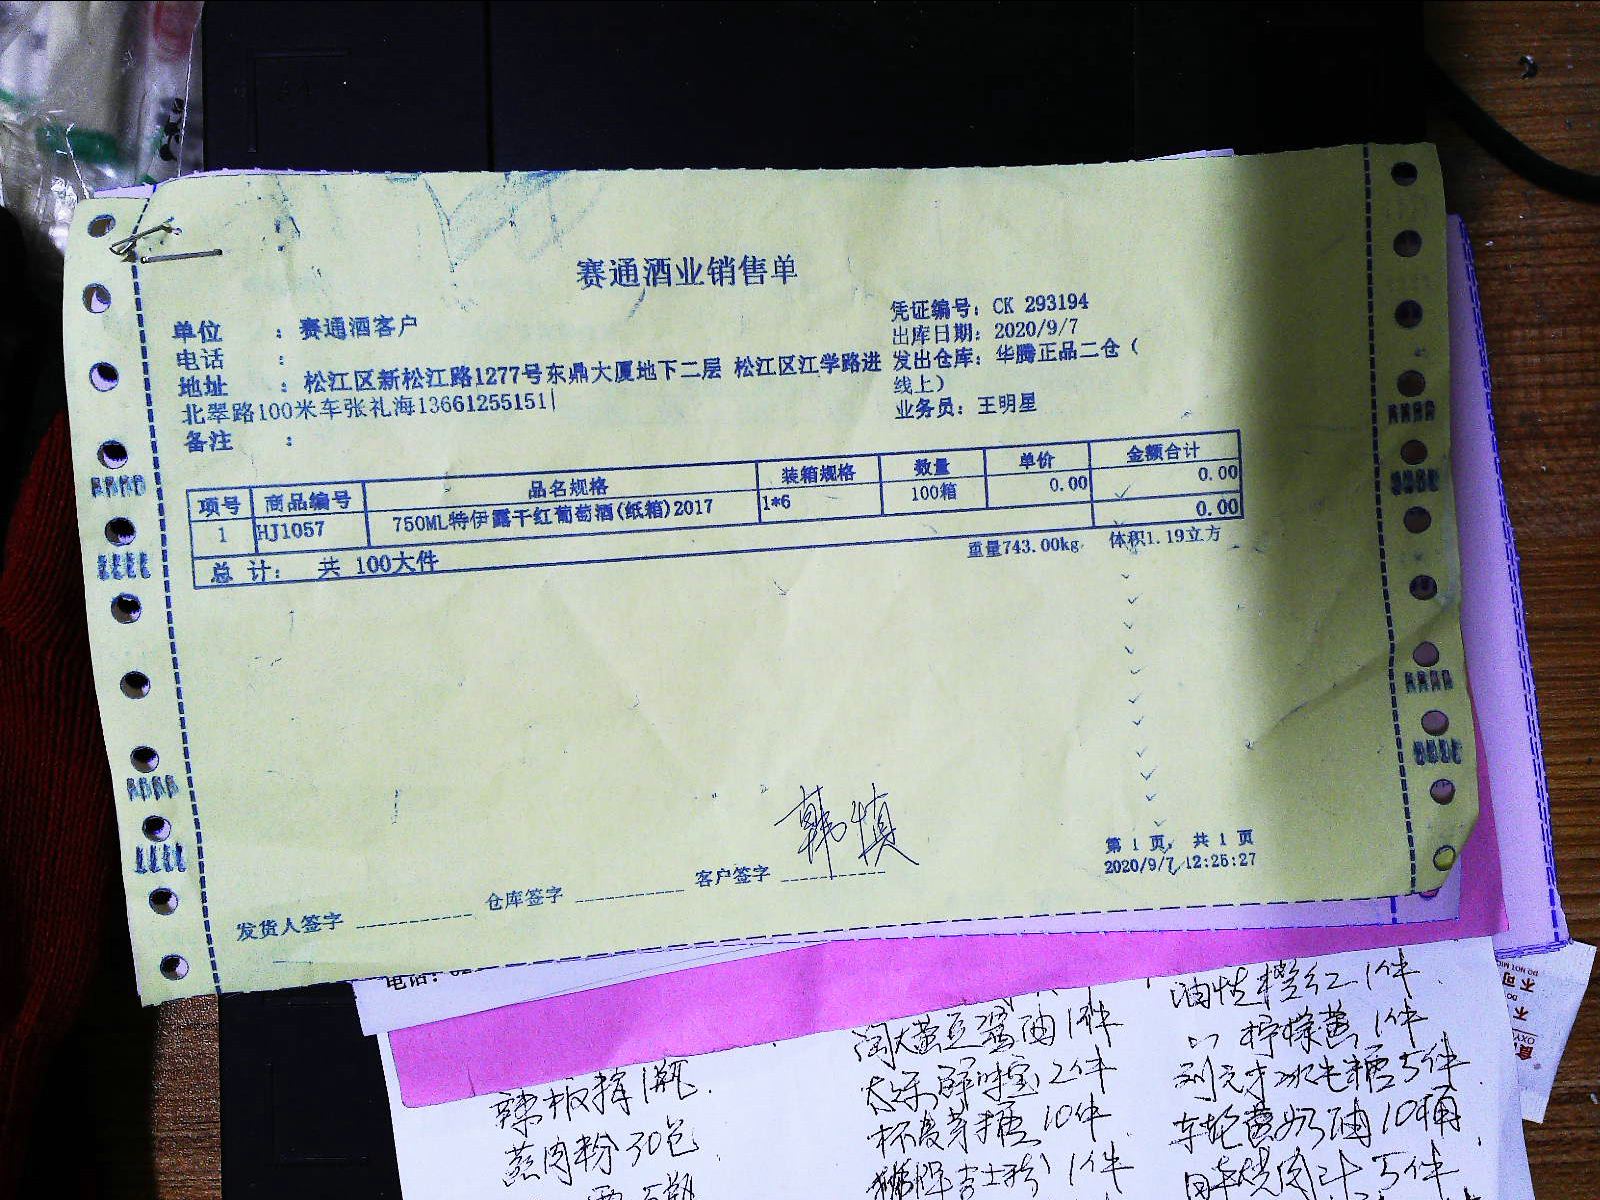 赛通酒业销售单
单位 ： 赛通酒客户
电话 ：
地址 ： 松江区新松江路1277号东鼎大厦地下二层 松江区江学路进
北翠路100米车张礼海13661255151
备注 ：
凭证编号：CK 293194
出库日期：2020/9/7
发出仓库：华腾正品二仓（
线上）
业务员：王明星
项号 商品编号 品名规格 装箱规格 数量 单价 金额合计
1 HJ1057 750ML特伊露干红葡萄酒(纸箱)2017 1*6 100箱 0.00 0.00
总 计： 共 100大件 0.00
重量743.00kg 体积1.19立方
发货人签字 仓库签字 客户签字 韩慎
第 1 页， 共 1 页
2020/9/7 12:26:27
电话：
辣椒 1瓶
蒸肉粉 30包
淘大黄豆酱油 1件
太乐鲜味宝 2件
麦芽糖 10件
吉士粉 1件
油性橙红 1件
柠檬黄 1件
冰片糖 5件
车轮黄奶油 10桶
日本烧肉汁 5件